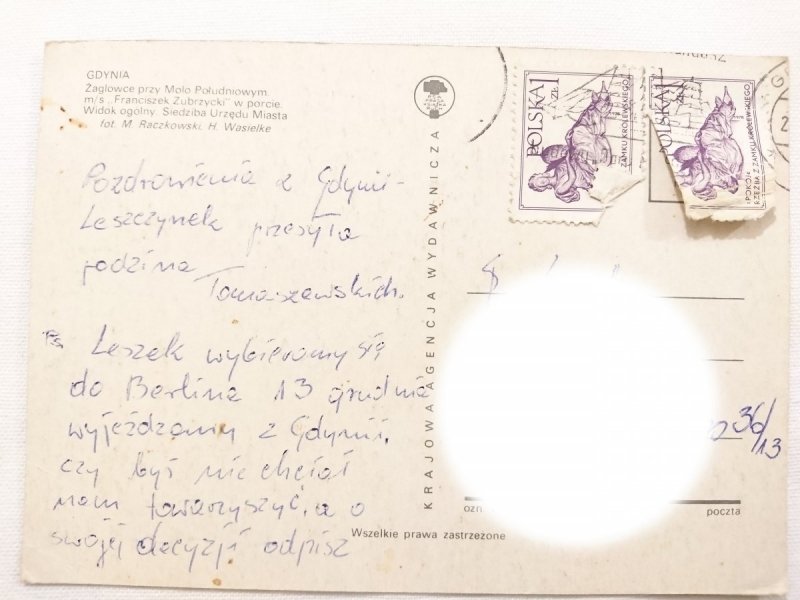 GDYNIA
Żaglowce przy Molo Południowym.
m/s „Franciszek Zubrzycki" w porcie.
Widok ogólny. Siedziba Urzędu Miasta
fot. M. Raczkowski, H. Wasielke
Pozdrowienia z Gdyni-
Leszczynek przesyła
rodzina
Tomaszewskich.
Ps Leszek wybieramy się
do Berlina 13 grudnia
wyjeżdzamy z Gdynii.
czy byś nie chciał
nam towarzyszyć, a o
swojej decyzji odpisz
KRAJOWA AGENCJA WYDAWNICZA
POLSKA 1 ZŁ
ZAMKU KRÓLEWSKIEGO
POLSKA 1 ZŁ
„POKÓJ"
RZEŹBA Z ZAMKU KRÓLEWSKIEGO
36/13
poczta
Wszelkie prawa zastrzeżone